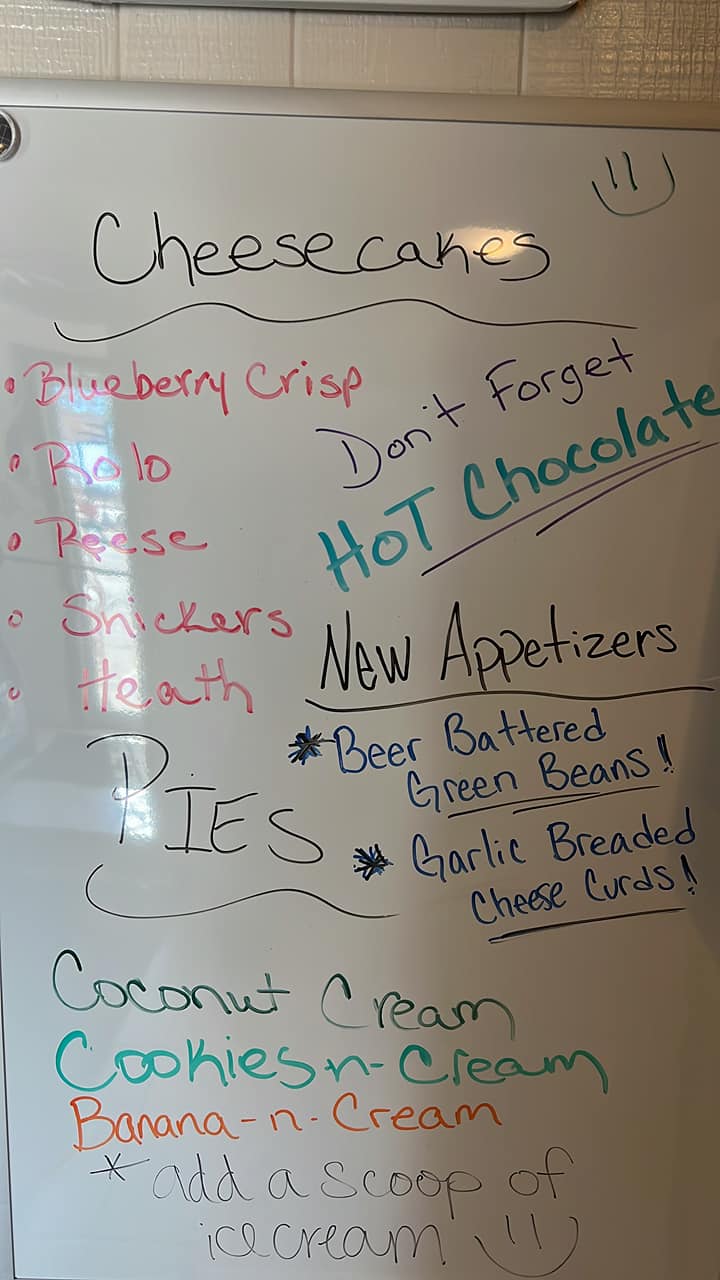 Cheesecakes
• Blueberry Crisp
• Rolo
• Reese
• Snickers
• Heath
Don't Forget
HOT Chocolate
New Appetizers
* Beer Battered
Green Beans!
* Garlic Breaded
Cheese Curds!
PIES
Coconut Cream
Cookies-n-Cream
Banana-n-Cream
* add a scoop of
ice cream